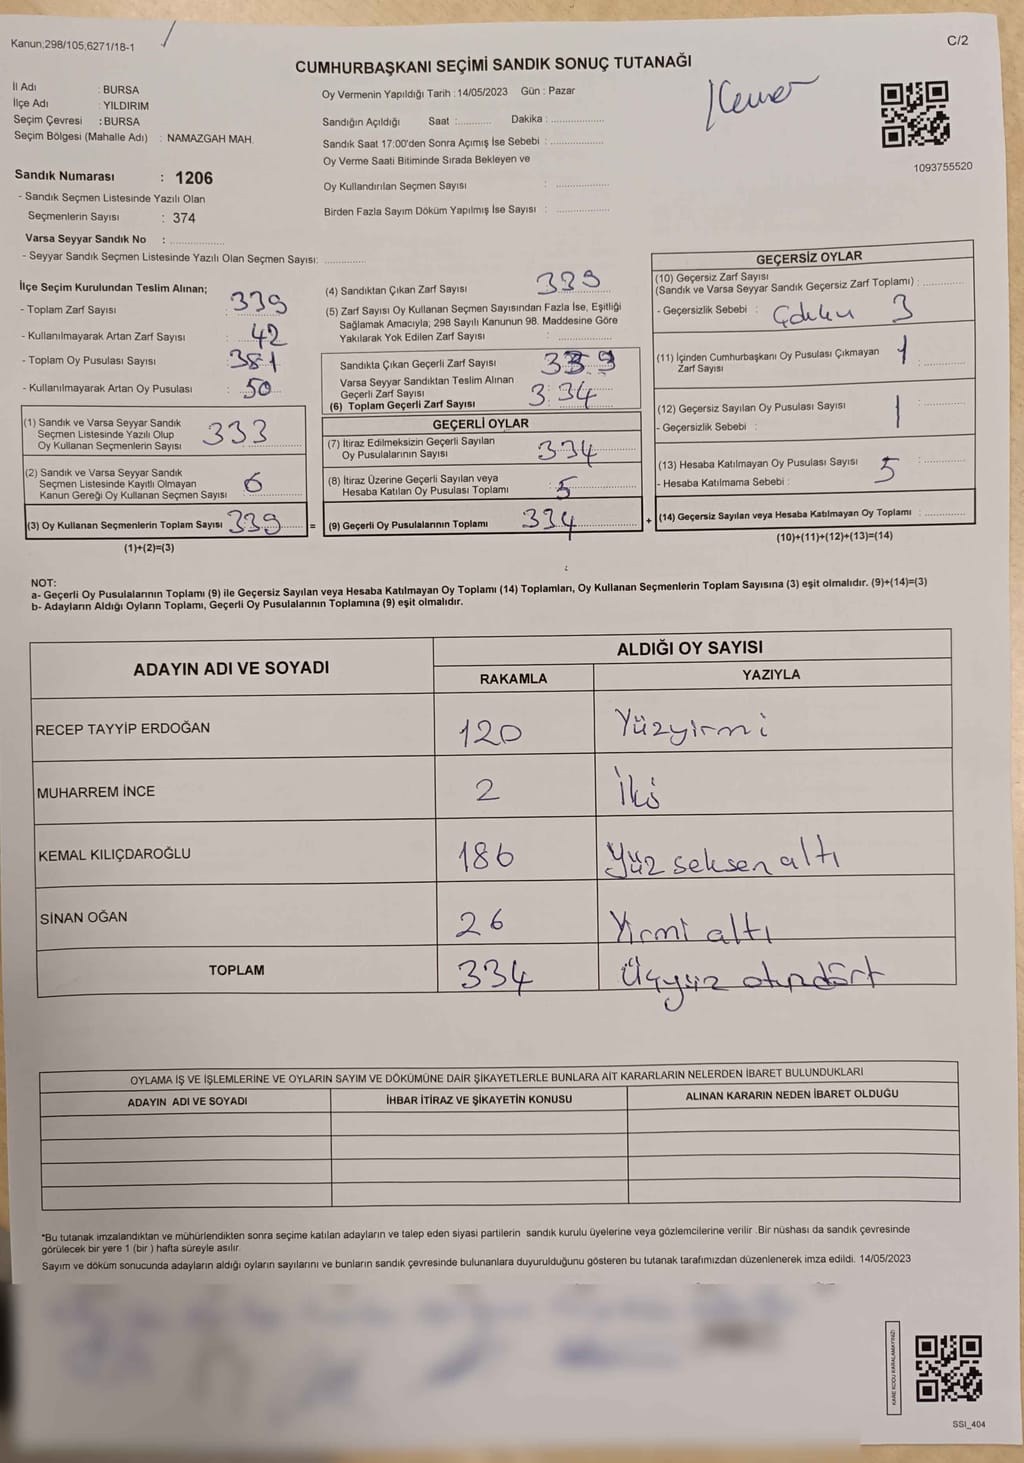 Kanun;298/105;6271/18-1
C/2
CUMHURBAŞKANI SEÇİMİ SANDIK SONUÇ TUTANAĞI
İl Adı : BURSA
İlçe Adı : YILDIRIM
Seçim Çevresi : BURSA
Seçim Bölgesi (Mahalle Adı) : NAMAZGAH MAH.
Oy Vermenin Yapıldığı Tarih : 14/05/2023 Gün : Pazar
Sandığın Açıldığı Saat :............ Dakika :...................
Sandık Saat 17:00'den Sonra Açımış İse Sebebi : ...................
Oy Verme Saati Bitiminde Sırada Bekleyen ve
Oy Kullandırılan Seçmen Sayısı : ...................
Birden Fazla Sayım Döküm Yapılmış İse Sayısı : ...................
1093755520
Sandık Numarası : 1206
- Sandık Seçmen Listesinde Yazılı Olan
Seçmenlerin Sayısı : 374
Varsa Seyyar Sandık No : ...................
- Seyyar Sandık Seçmen Listesinde Yazılı Olan Seçmen Sayısı: ..............
İlçe Seçim Kurulundan Teslim Alınan;
- Toplam Zarf Sayısı : 339
- Kullanılmayarak Artan Zarf Sayısı : 42
- Toplam Oy Pusulası Sayısı : 381
- Kullanılmayarak Artan Oy Pusulası : 50
(1) Sandık ve Varsa Seyyar Sandık
Seçmen Listesinde Yazılı Olup
Oy Kullanan Seçmenlerin Sayısı 333
(2) Sandık ve Varsa Seyyar Sandık
Seçmen Listesinde Kayıtlı Olmayan
Kanun Gereği Oy Kullanan Seçmen Sayısı 6
(3) Oy Kullanan Seçmenlerin Toplam Sayısı 339 =
(1)+(2)=(3)
(4) Sandıktan Çıkan Zarf Sayısı 339
(5) Zarf Sayısı Oy Kullanan Seçmen Sayısından Fazla İse, Eşitliği
Sağlamak Amacıyla; 298 Sayılı Kanunun 98. Maddesine Göre
Yakılarak Yok Edilen Zarf Sayısı : ...................
Sandıkta Çıkan Geçerli Zarf Sayısı 339
Varsa Seyyar Sandıktan Teslim Alınan
Geçerli Zarf Sayısı
(6) Toplam Geçerli Zarf Sayısı 334
GEÇERLİ OYLAR
(7) İtiraz Edilmeksizin Geçerli Sayılan
Oy Pusulalarının Sayısı 334
(8) İtiraz Üzerine Geçerli Sayılan veya
Hesaba Katılan Oy Pusulası Toplamı : 5
(9) Geçerli Oy Pusulalarının Toplamı 334 +
GEÇERSİZ OYLAR
(10) Geçersiz Zarf Sayısı
(Sandık ve Varsa Seyyar Sandık Geçersiz Zarf Toplamı) : ..............
- Geçersizlik Sebebi : 3
(11) İçinden Cumhurbaşkanı Oy Pusulası Çıkmayan
Zarf Sayısı 1 : ..............
(12) Geçersiz Sayılan Oy Pusulası Sayısı 1 : ..............
- Geçersizlik Sebebi :
(13) Hesaba Katılmayan Oy Pusulası Sayısı 5 : ..............
- Hesaba Katılmama Sebebi :
(14) Geçersiz Sayılan veya Hesaba Katılmayan Oy Toplamı : ..............
(10)+(11)+(12)+(13)=(14)
NOT:
a- Geçerli Oy Pusulalarının Toplamı (9) ile Geçersiz Sayılan veya Hesaba Katılmayan Oy Toplamı (14) Toplamları, Oy Kullanan Seçmenlerin Toplam Sayısına (3) eşit olmalıdır. (9)+(14)=(3)
b- Adayların Aldığı Oyların Toplamı, Geçerli Oy Pusulalarının Toplamına (9) eşit olmalıdır.
ADAYIN ADI VE SOYADI
ALDIĞI OY SAYISI
RAKAMLA YAZIYLA
RECEP TAYYİP ERDOĞAN 120 Yüzyirmi
MUHARREM İNCE 2 İki
KEMAL KILIÇDAROĞLU 186 Yüz seksen altı
SİNAN OĞAN 26 Yirmi altı
TOPLAM 334 Üçyüz otuzdört
OYLAMA İŞ VE İŞLEMLERİNE VE OYLARIN SAYIM VE DÖKÜMÜNE DAİR ŞİKAYETLERLE BUNLARA AİT KARARLARIN NELERDEN İBARET BULUNDUKLARI
ADAYIN ADI VE SOYADI İHBAR İTİRAZ VE ŞİKAYETİN KONUSU ALINAN KARARIN NEDEN İBARET OLDUĞU
*Bu tutanak imzalandıktan ve mühürlendikten sonra seçime katılan adayların ve talep eden siyasi partilerin sandık kurulu üyelerine veya gözlemcilerine verilir .Bir nüshası da sandık çevresinde
görülecek bir yere 1 (bir ) hafta süreyle asılır.
Sayım ve döküm sonucunda adayların aldığı oyların sayılarını ve bunların sandık çevresinde bulunanlara duyurulduğunu gösteren bu tutanak tarafımızdan düzenlenerek imza edildi. 14/05/2023
KARE KODU KARALAMAYINIZ!
SSI_404